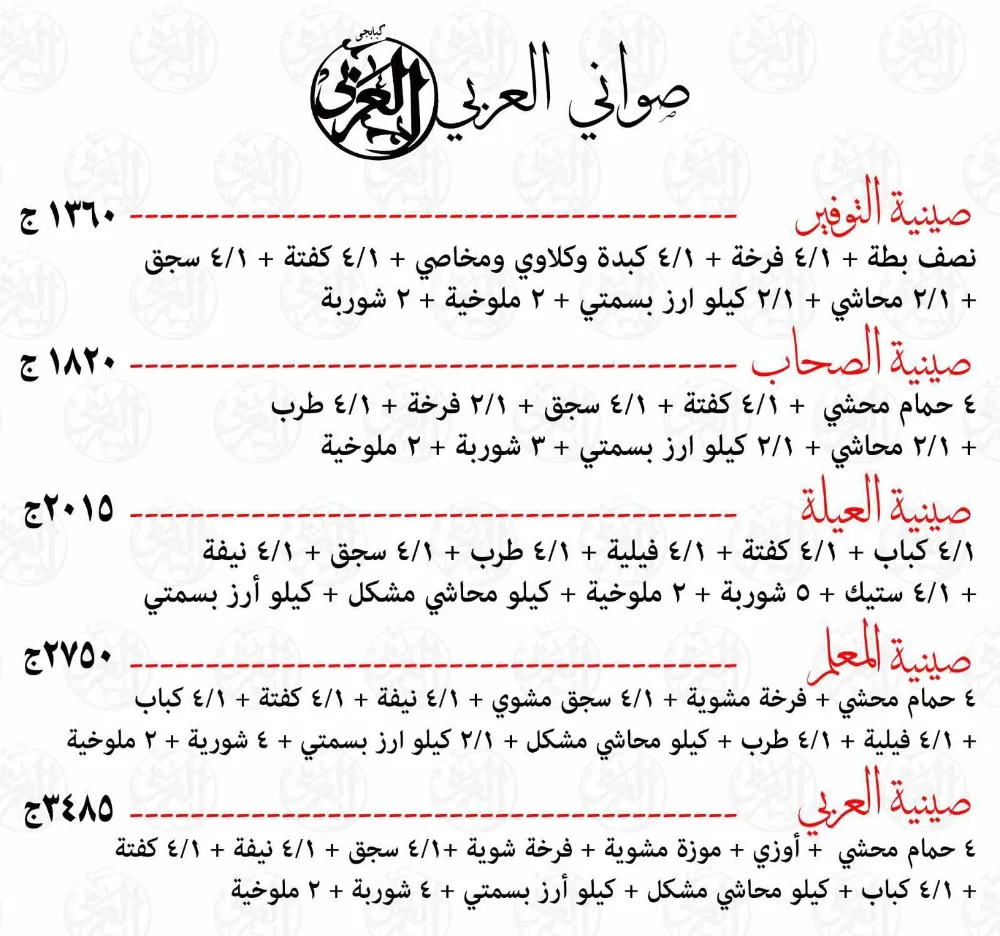 صواني العربي
كبابجي
العربي
صينية التوفير ------ ١٣٦٠ ج
نصف بطة + ٤/١ فرخة + ٤/١ كبدة وكلاوي ومخاصي + ٤/١ كفتة + ٤/١ سجق
+ ٢/١ محاشي + ٢/١ كيلو ارز بسمتي + ٢ ملوخية + ٢ شوربة
صينية الصحاب ------ ١٨٢٠ ج
٤ حمام محشي + ٤/١ كفتة + ٤/١ سجق + ٢/١ فرخة + ٤/١ طرب
+ ٢/١ محاشي + ٢/١ كيلو ارز بسمتي + ٣ شوربة + ٢ ملوخية
صينية العيلة ------ ٢٠١٥ج
٤/١ كباب + ٤/١ كفتة + ٤/١ فيلية + ٤/١ طرب + ٤/١ سجق + ٤/١ نيفة
+ ٤/١ ستيك + ٥ شوربة + ٢ ملوخية + كيلو محاشي مشكل + كيلو أرز بسمتي
صينية المعلم ------ ٢٧٥٠ج
٤ حمام محشي + فرخة مشوية + ٤/١ سجق مشوي + ٤/١ نيفة + ٤/١ كفتة + ٤/١ كباب
+ ٤/١ فيلية + ٤/١ طرب + كيلو محاشي مشكل + ٢/١ كيلو ارز بسمتي + ٤ شوربة + ٢ ملوخية
صينية العربي ------ ٣٤٨٥ج
٤ حمام محشي + أوزي + موزة مشوية + فرخة شوية +٤/١ سجق + ٤/١ نيفة + ٤/١ كفتة
+ ٤/١ كباب + كيلو محاشي مشكل + كيلو أرز بسمتي + ٤ شوربة + ٢ ملوخية